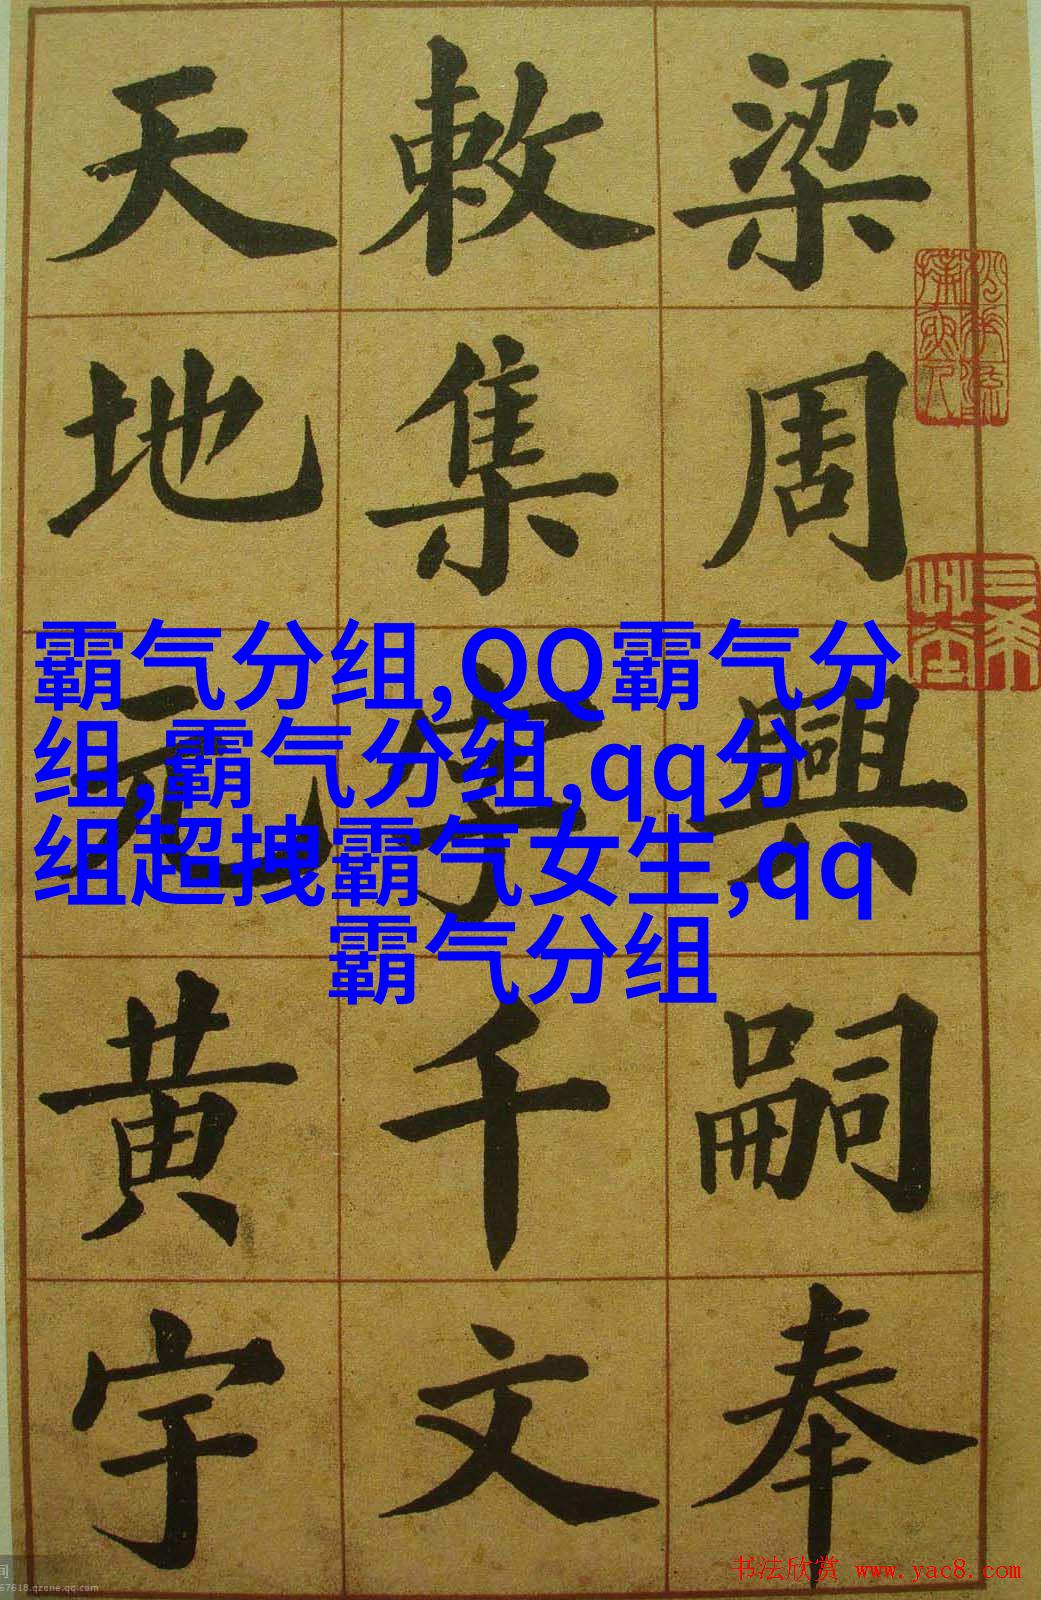 梁周興嗣奉
敕集字千文
天地元黃宇
霸气分组,QQ霸气分
组,霸气分组,qq分
组超拽霸气女生,qq
霸气分组
书法欣赏 www.yac8.com
67618.qzone.qq.com